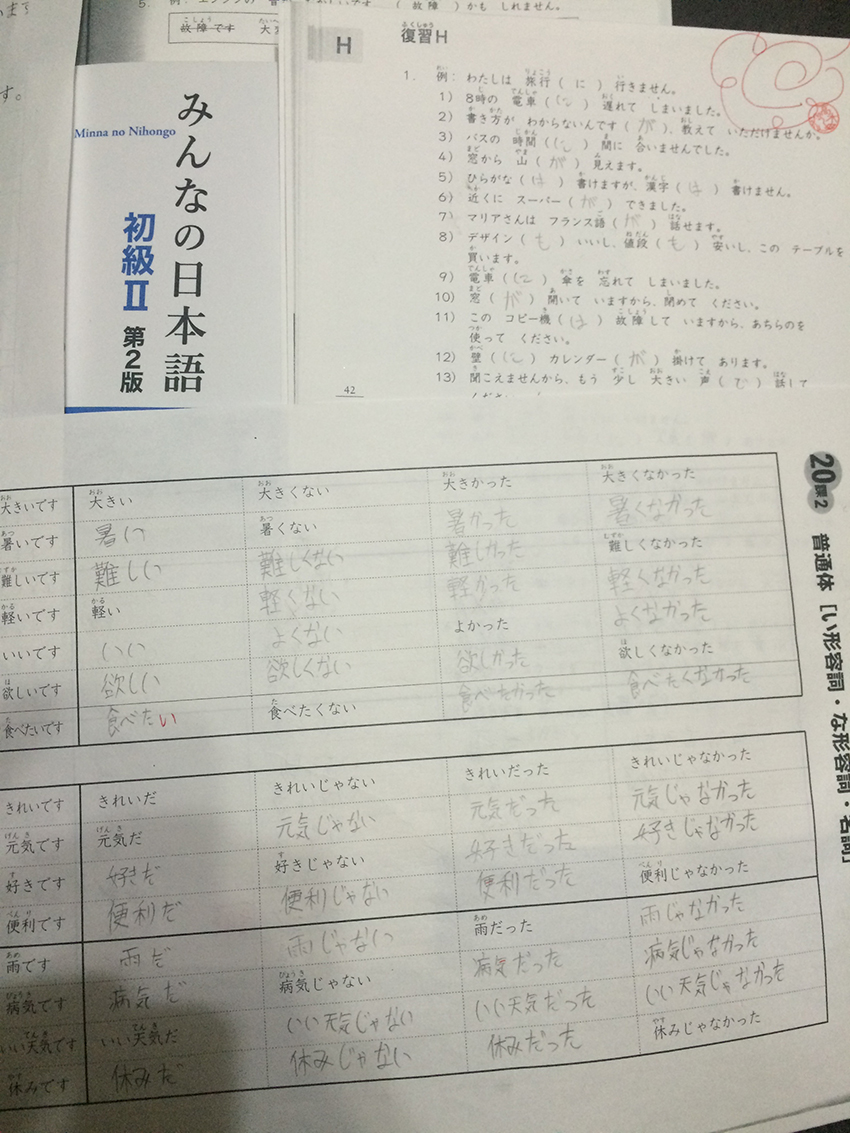 故障です
(故障)かも しれません。
みんなの日本語
Minna no Nihongo
初級II 第2版
H
復習H
1. 例: わたしは 旅行( に ) 行きません。
1) 8時の 電車( に ) 遅れて しまいました。
2) 書き方が わからないんです( が )、教えて いただけませんか。
3) バスの 時間( に ) 間に 合いませんでした。
4) 窓から 山( が ) 見えます。
5) ひらがな( は ) 書けますが、漢字( は ) 書けません。
6) 近くに スーパー( が ) できました。
7) マリアさんは フランス語( が ) 話せます。
8) デザイン( も ) いいし、値段( も ) 安いし、この テーブルを
買います。
9) 電車( に ) 傘を 忘れて しまいました。
10) 窓( が ) 開いて いますから、閉めて ください。
11) この コピー機( は ) 故障して いますから、あちらのを
使って ください。
12) 壁( に ) カレンダー( が ) 掛けて あります。
13) 聞こえませんから、もう 少し 大きい 声( で ) 話して
42
20課2 普通体 [い形容詞・な形容詞・名詞]
大きいです 大きい 大きくない 大きかった 大きくなかった
暑いです 暑い 暑くない 暑かった 暑くなかった
難しいです 難しい 難しくない 難しかった 難しくなかった
軽いです 軽い 軽くない 軽かった 軽くなかった
いいです いい よくない よかった よくなかった
欲しいです 欲しい 欲しくない 欲しかった 欲しくなかった
食べたいです 食べたい 食べたくない 食べたかった 食べたくなかった
きれいです きれいだ きれいじゃない きれいだった きれいじゃなかった
元気です 元気だ 元気じゃない 元気だった 元気じゃなかった
好きです 好きだ 好きじゃない 好きだった 好きじゃなかった
便利です 便利だ 便利じゃない 便利だった 便利じゃなかった
雨です 雨だ 雨じゃない 雨だった 雨じゃなかった
病気です 病気だ 病気じゃない 病気だった 病気じゃなかった
いい天気です いい天気だ いい天気じゃない いい天気だった いい天気じゃなかった
休みです 休みだ 休みじゃない 休みだった 休みじゃなかった